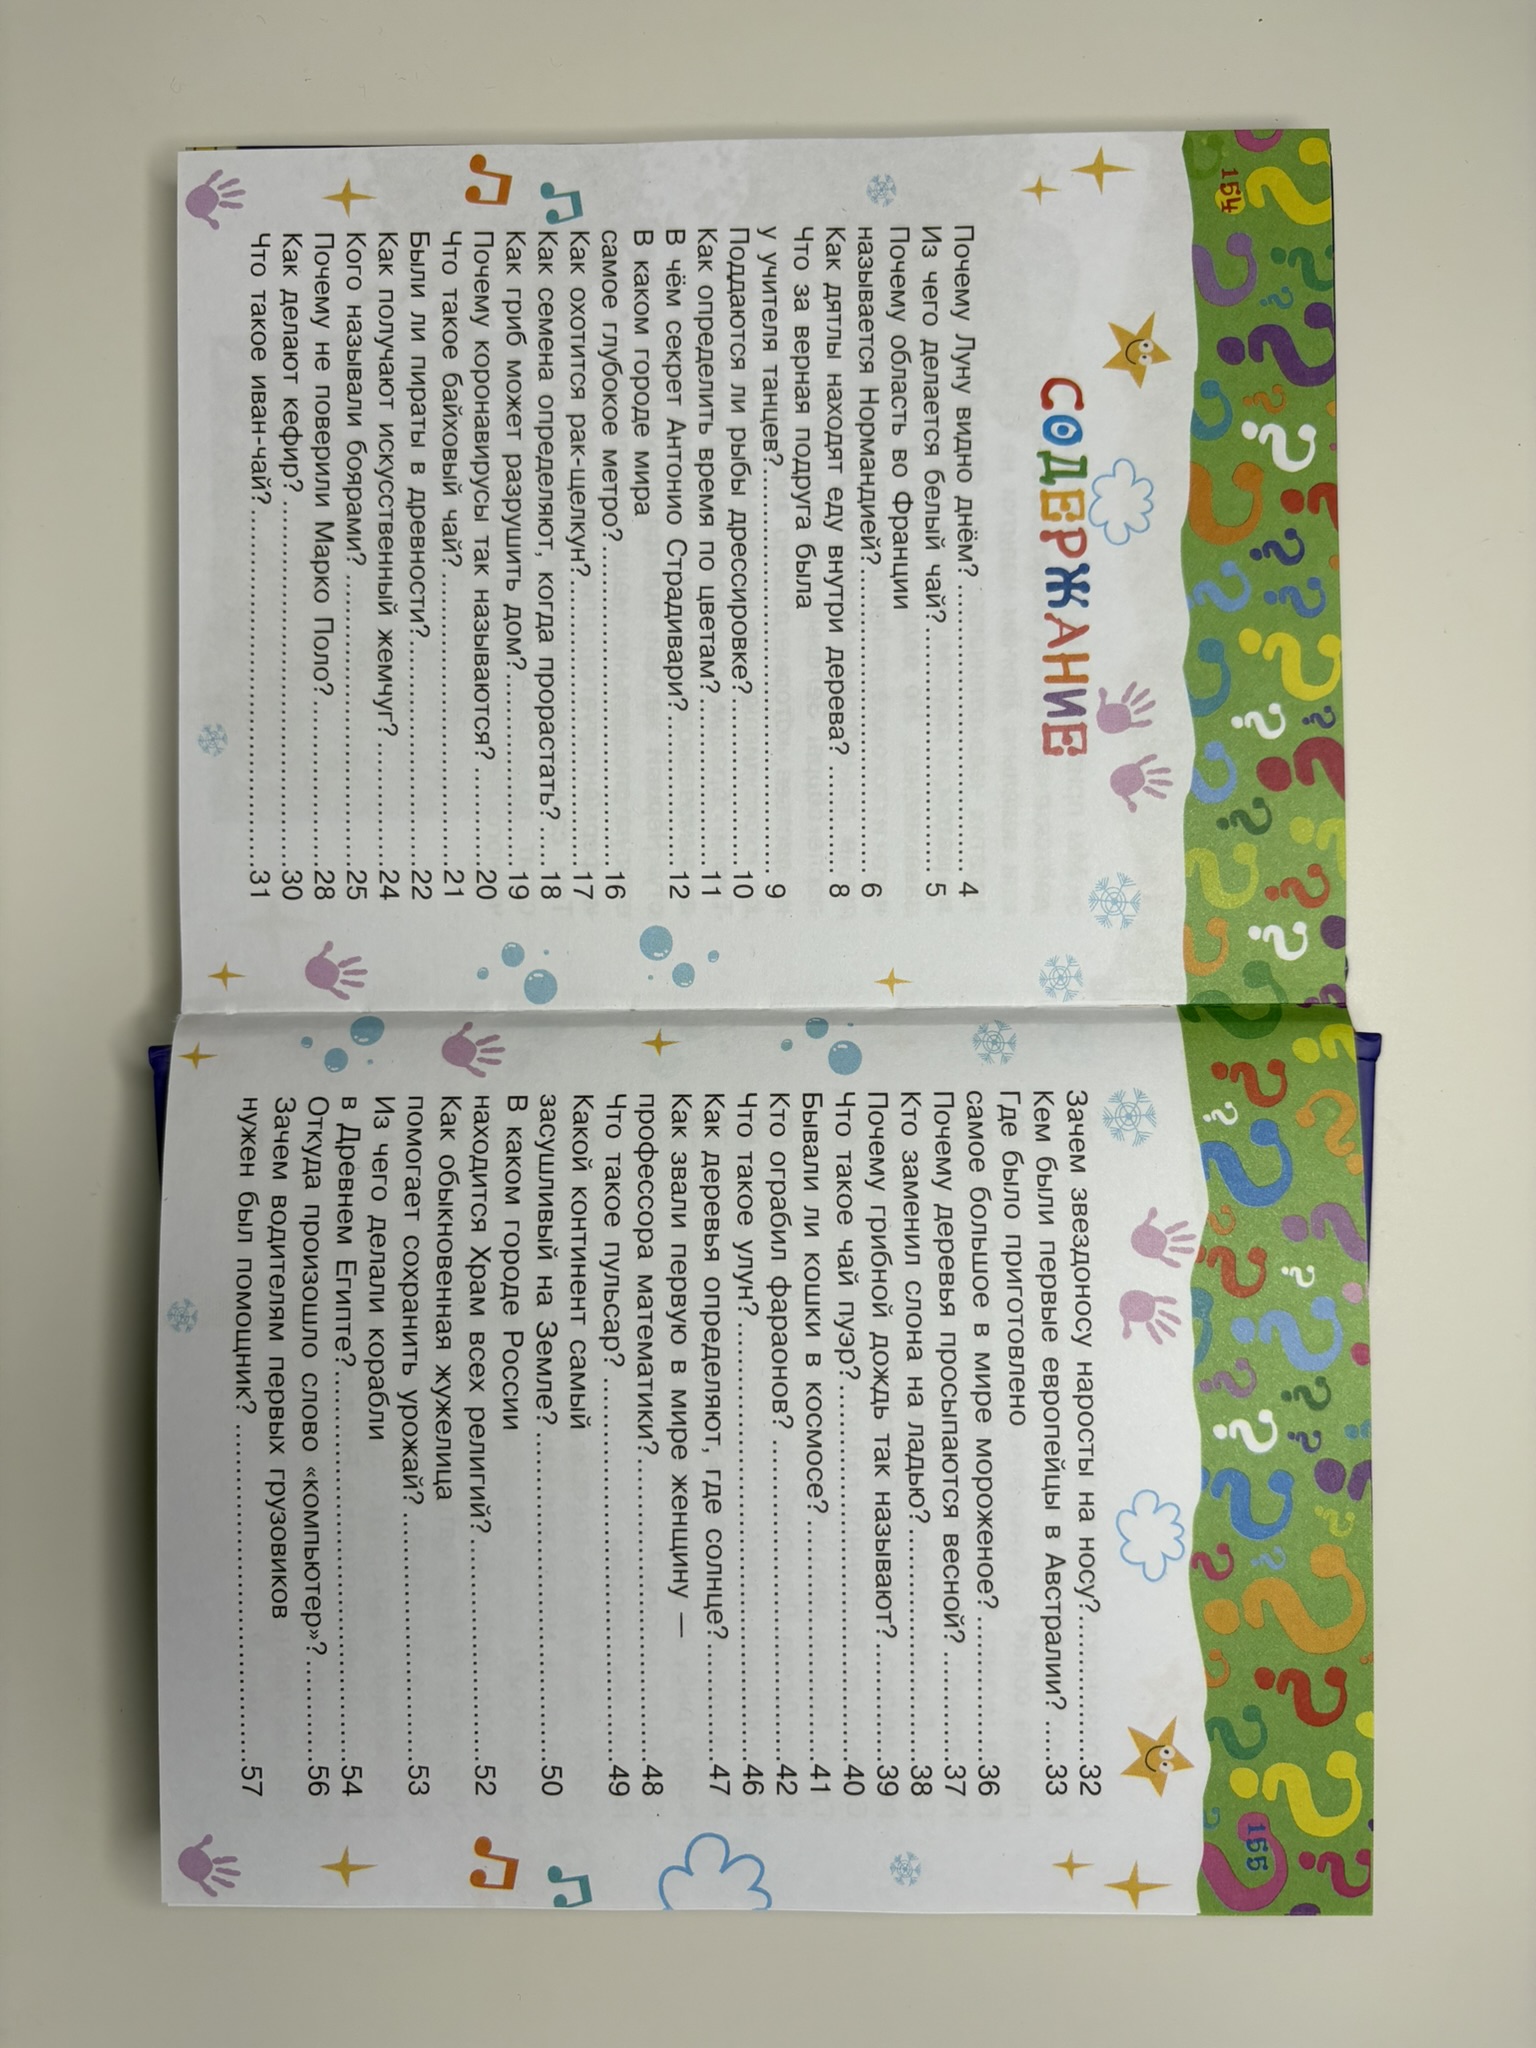 154
СОДЕРЖАНИЕ
Почему Луну видно днём? ................................ 4
Из чего делается белый чай? ............................ 5
Почему область во Франции
называется Нормандией? ................................ 6
Как дятлы находят еду внутри дерева? .......... 8
Что за верная подруга была
у учителя танцев? ........................................ 9
Поддаются ли рыбы дрессировке? .................. 10
Как определить время по цветам? .................. 11
В чём секрет Антонио Страдивари? ................ 12
В каком городе мира
самое глубокое метро? .................................. 16
Как охотится рак-щелкун? .............................. 17
Как семена определяют, когда прорастать? ... 18
Как гриб может разрушить дом? ..................... 19
Почему коронавирусы так называются? ......... 20
Что такое байховый чай? ................................ 21
Были ли пираты в древности? ......................... 22
Как получают искусственный жемчуг? ............ 24
Кого называли боярами? ................................ 25
Почему не поверили Марко Поло? .................. 28
Как делают кефир? ........................................ 30
Что такое иван-чай? ...................................... 31
155
Зачем звездоносу наросты на носу? ............... 32
Кем были первые европейцы в Австралии? .... 33
Где было приготовлено
самое большое в мире мороженое? ................ 36
Почему деревья просыпаются весной? ........... 37
Кто заменил слона на ладью? ......................... 38
Почему грибной дождь так называют? ............ 39
Что такое чай пуэр? ....................................... 40
Бывали ли кошки в космосе? .......................... 41
Кто ограбил фараонов? .................................. 42
Что такое улун? ............................................. 46
Как деревья определяют, где солнце? ............ 47
Как звали первую в мире женщину —
профессора математики? ............................... 48
Что такое пульсар? ........................................ 49
Какой континент самый
засушливый на Земле? ................................... 50
В каком городе России
находится Храм всех религий? ....................... 52
Как обыкновенная жужелица
помогает сохранить урожай? .......................... 53
Из чего делали корабли
в Древнем Египте? ......................................... 54
Откуда произошло слово «компьютер»? ......... 56
Зачем водителям первых грузовиков
нужен был помощник? .................................... 57